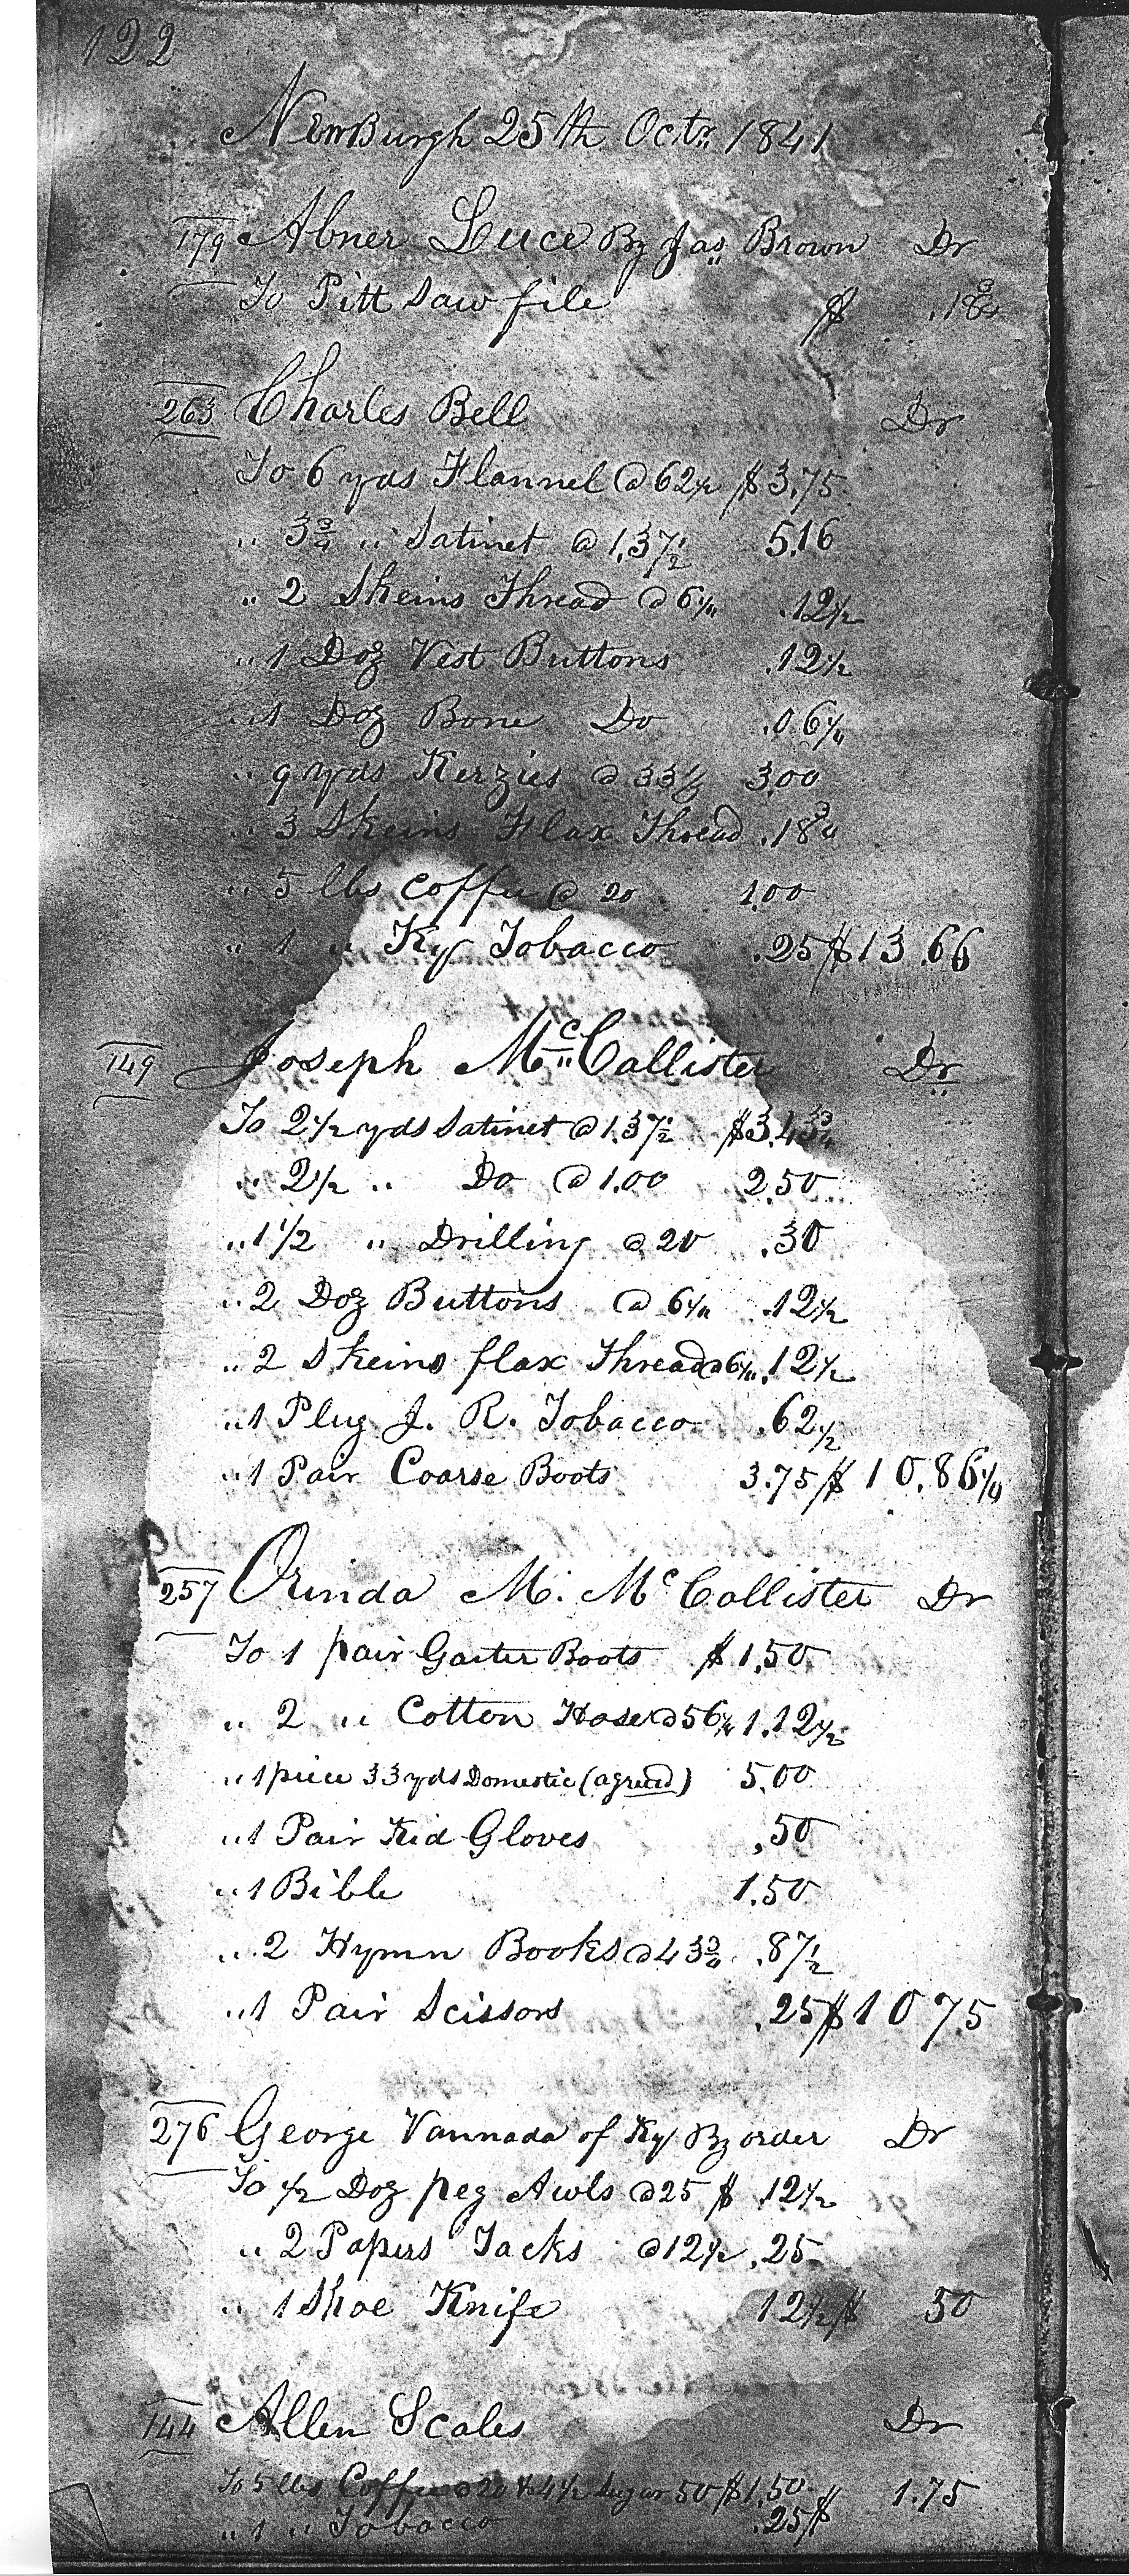 122
NewBurgh 25th Octr. 1841
179 Abner Luce By Jas. Brown Dr
To Pitt Saw file $ .18¾
263 Charles Bell Dr
To 6 yds Flannel @ 62½ $3.75
" 3¾ " Satinet @ 1.37½ 5.16
" 2 Skeins Thread @ 6¼ .12½
" 1 Doz Vest Buttons .12½
" 1 Doz Bone Do .06¼
" 9 yds Kerzies @ 33⅓ 3.00
" 3 Skeins Flax Thread .18¾
" 5 lbs Coffee @ 20 1.00
" 1 " Ky Tobacco .25 $13.66
149 Joseph McCallister Dr
To 2½ yds Satinet @ 1.37½ $3.43¾
" 2½ " Do @ 1.00 2.50
" 1 1/2 " Drilling @ 20 .30
" 2 Doz Buttons @ 6¼ .12½
" 2 Skeins flax Thread @ 6¼ .12½
" 1 Plug J. R. Tobacco .62½
" 1 Pair Coarse Boots 3.75 $10.86¼
257 Orinda M. McCallister Dr
To 1 pair Gaiter Boots $1.50
" 2 " Cotton Hose @ 56¼ 1.12½
" 1 piece 33 yds Domestic (agreed) 5.00
" 1 Pair Kid Gloves .50
" 1 Bible 1.50
" 2 Hymn Books @ 43¾ .87½
" 1 Pair Scissors .25 $10 75
276 George Vannada of Ky By order Dr
To ½ Doz peg Awls @ 25 $ .12½
" 2 Papers Tacks @ 12½ .25
" 1 Shoe Knife 12½ $ 50
144 Allen Scales Dr
To 5 lbs Coffee @ 20 & 4½ Sugar 50 $1.50 1.75
" 1 " Tobacco .25 $